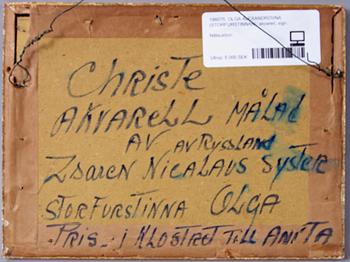 OLGA ALEXANDROVNA
Utrop: 5 000 SEK
CHRISTE
AKVARELL MÅLAD
AV AV RYSSLAND
ZSAREN NICALAUS SYSTER
STORFURSTINNA OLGA
PRIS. I KLOSTRET TILL ANITA